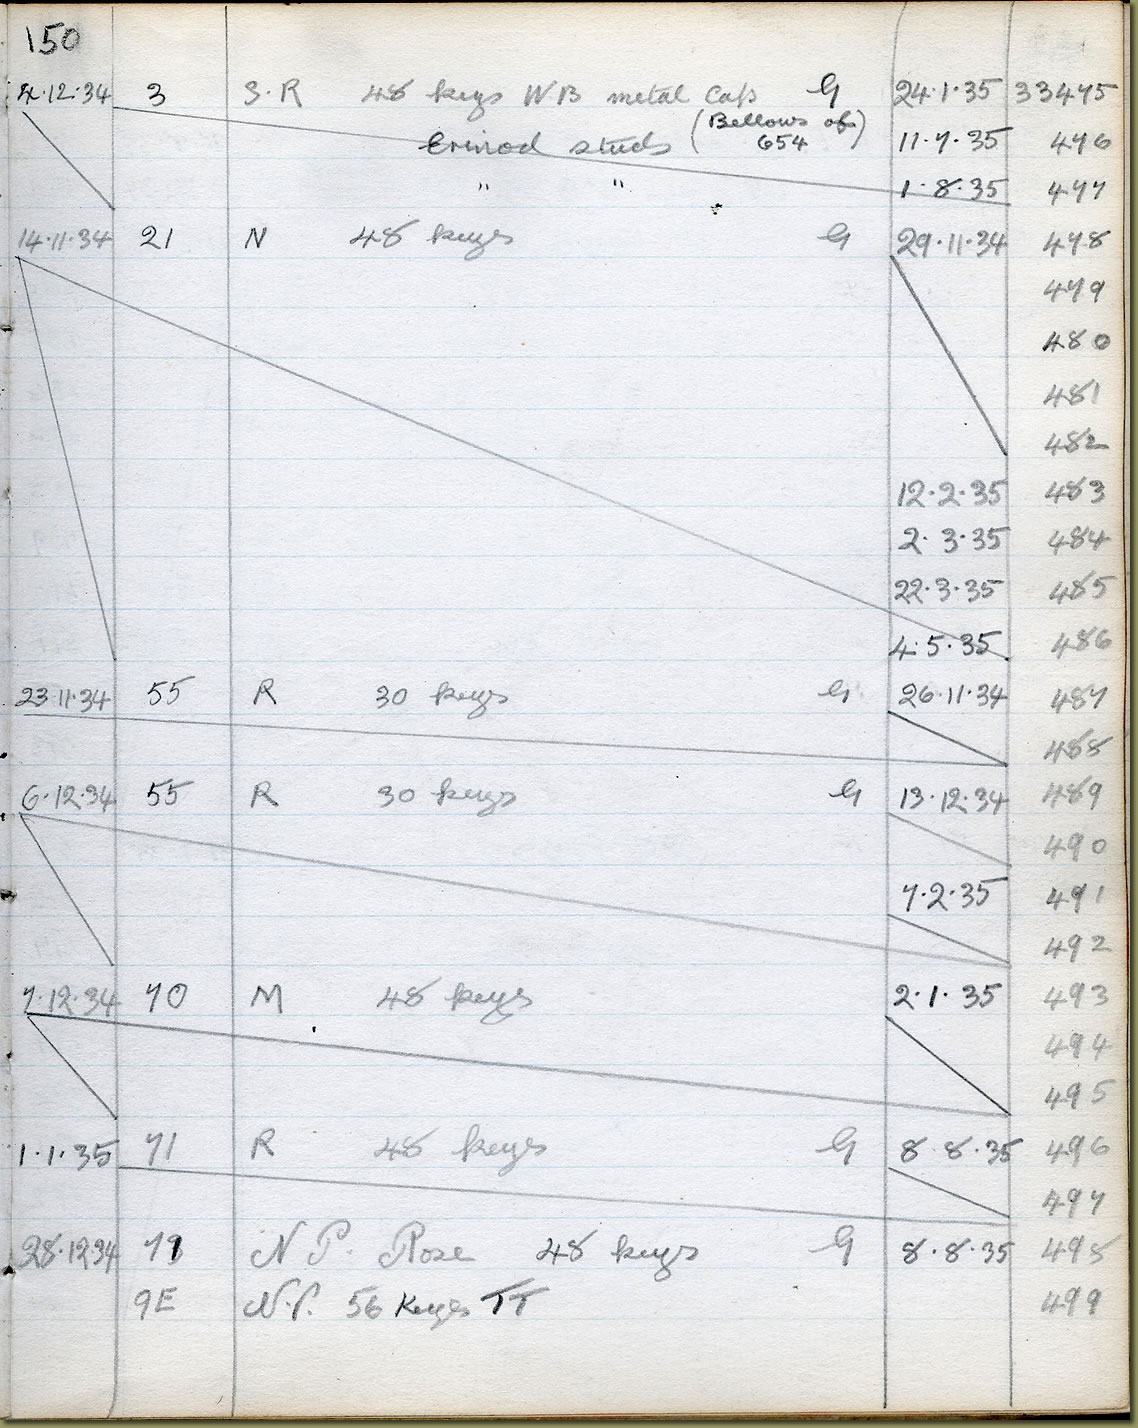 150
4.12.34 3 S.R 48 keys WB metal Cap G 24.1.35 33475
Erinoid studs (Bellows of 654) 11.7.35 476
" " 1.8.35 477
14.11.34 21 N 48 keys G 29.11.34 478
479
480
481
482
12.2.35 483
2.3.35 484
22.3.35 485
4.5.35 486
23.11.34 55 R 30 keys G 26.11.34 487
488
6.12.34 55 R 30 keys G 13.12.34 489
490
7.2.35 491
492
7.12.34 70 M 48 keys 2.1.35 493
494
495
1.1.35 71 R 48 keys G 8.8.35 496
497
28.12.34 N.P. Rose 48 keys G 8.8.35 498
9E N.P. 56 Keys TT 499